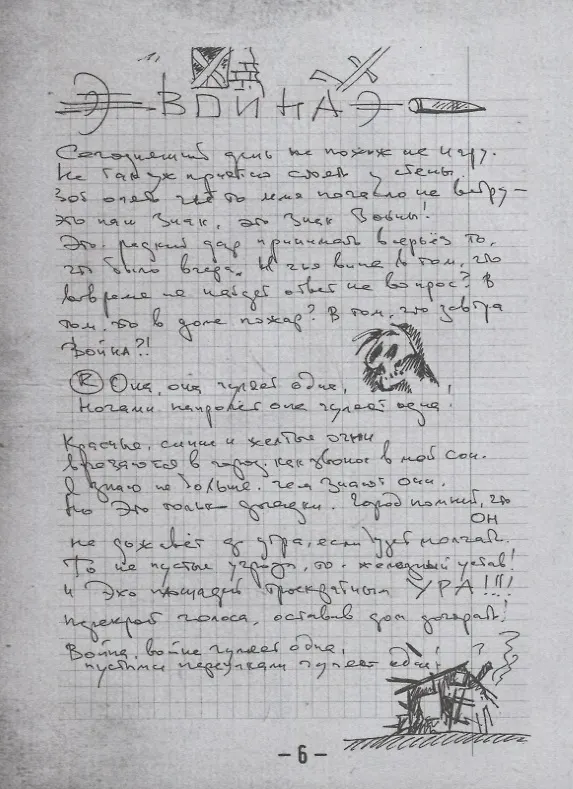 ВОЙНА
Сегодняшний день не похож на игру.
Не так уж приятно стоять у стены.
Вот опять что-то меня по ветру –
это наш Знак, это Знак Войны!
Это редкий дар принимать всерьёз то,
что было вчера. И чья вина в том, что
вовремя не найдет ответ на вопрос? В
том, что в доме пожар? В том, что завтра
Война?!
(R) Она, она гуляет одна,
Ночами напролёт она гуляет одна!
Красные, синие и желтые огни
врезаются в город, как звонок в мой сон.
Я знаю не больше, чем знают они.
Но это только догадки. Город помнит, что
ОН
не доживёт до утра, если будет молчать.
То не пустые угрозы, то – железный устав!
и Эхо площадей троекратным УРА!!!!
перекроет голоса, оставив дом догорать!
Война, война гуляет одна,
пустыми переулками гуляет одна!
– 6 –